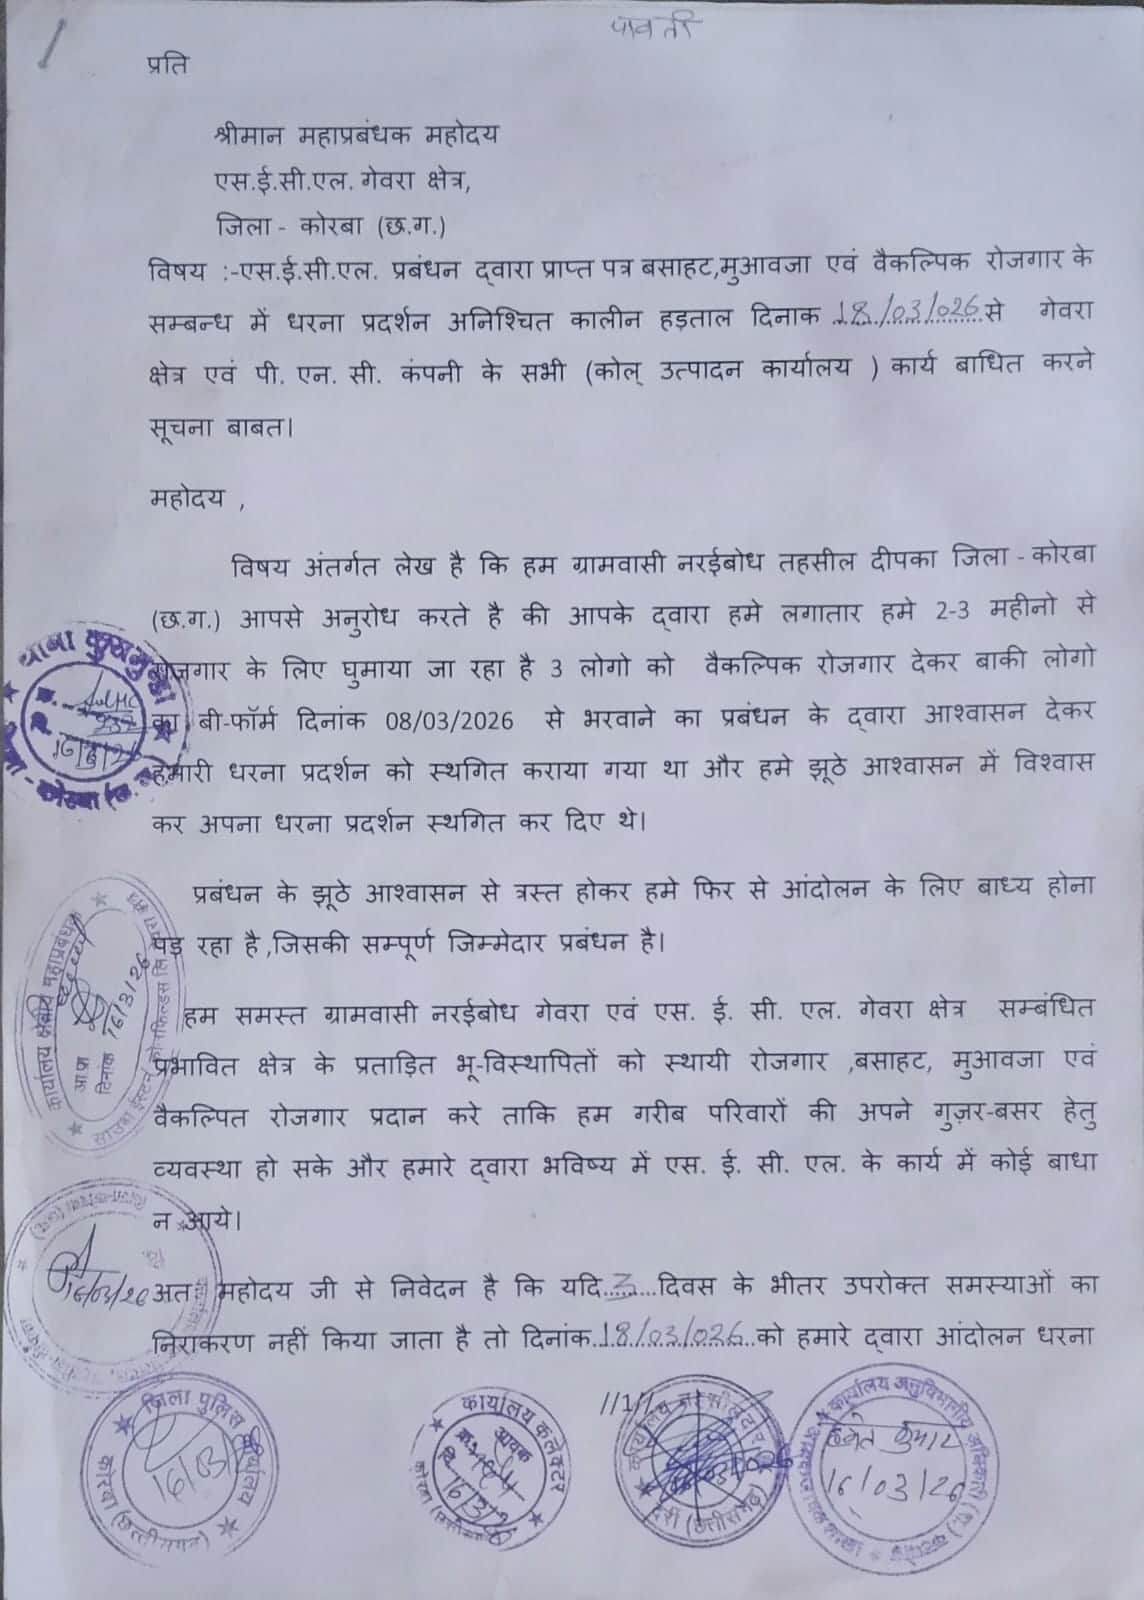 पावती
प्रति
श्रीमान महाप्रबंधक महोदय
एस.ई.सी.एल. गेवरा क्षेत्र,
जिला - कोरबा (छ.ग.)
विषय :-एस.ई.सी.एल. प्रबंधन द्वारा प्राप्त पत्र बसाहट,मुआवजा एवं वैकल्पिक रोजगार के
सम्बन्ध में धरना प्रदर्शन अनिश्चित कालीन हड़ताल दिनाक 18/03/026 से गेवरा
क्षेत्र एवं पी. एन. सी. कंपनी के सभी (कोल् उत्पादन कार्यालय ) कार्य बाधित करने
सूचना बाबत।
महोदय ,
विषय अंतर्गत लेख है कि हम ग्रामवासी नरईबोध तहसील दीपका जिला - कोरबा
(छ.ग.) आपसे अनुरोध करते है की आपके द्वारा हमे लगातार हमे 2-3 महीनो से
रोजगार के लिए घुमाया जा रहा है 3 लोगो को वैकल्पिक रोजगार देकर बाकी लोगो
का बी-फॉर्म दिनांक 08/03/2026 से भरवाने का प्रबंधन के द्वारा आश्वासन देकर
हमारी धरना प्रदर्शन को स्थगित कराया गया था और हमे झूठे आश्वासन में विश्वास
कर अपना धरना प्रदर्शन स्थगित कर दिए थे।
प्रबंधन के झूठे आश्वासन से त्रस्त होकर हमे फिर से आंदोलन के लिए बाध्य होना
पड़ रहा है ,जिसकी सम्पूर्ण जिम्मेदार प्रबंधन है।
हम समस्त ग्रामवासी नरईबोध गेवरा एवं एस. ई. सी. एल. गेवरा क्षेत्र सम्बंधित
प्रभावित क्षेत्र के प्रताड़ित भू-विस्थापितों को स्थायी रोजगार ,बसाहट, मुआवजा एवं
वैकल्पित रोजगार प्रदान करे ताकि हम गरीब परिवारों की अपने गुज़र-बसर हेतु
व्यवस्था हो सके और हमारे द्वारा भविष्य में एस. ई. सी. एल. के कार्य में कोई बाधा
न आये।
अतः महोदय जी से निवेदन है कि यदि 3 दिवस के भीतर उपरोक्त समस्याओं का
निराकरण नहीं किया जाता है तो दिनांक 18/03/026 को हमारे द्वारा आंदोलन धरना
थाना कुसमुण्डा
16/3/26
कार्यालय क्षेत्रीय महाप्रबंधक
आ.प्र.
दिनांक 16/3/26
16/03/26
जिला पुलिस कार्यालय
कोरबा (छत्तीसगढ़)
16/03/
कार्यालय कलेक्टर
आवक
16/3/26
कोरबा (छत्तीसगढ़)
(छत्तीसगढ़)
कार्यालय अनुविभागीय अधिकारी (रा.)
16/03/26